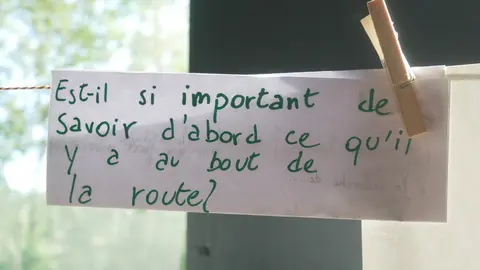 Est-il si important de
savoir d'abord ce qu'il
y a au bout de
la route?